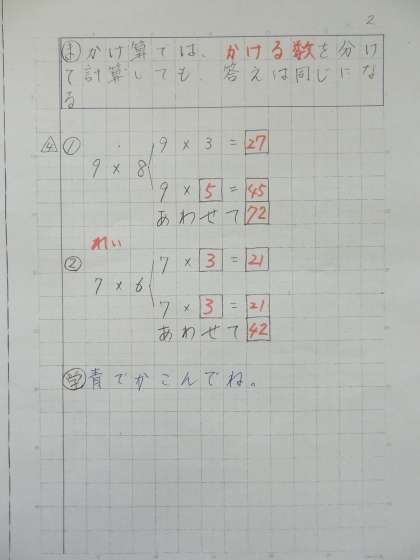 2
ま かけ算では、かける数を分け
て計算しても、答えは同じにな
る
4 ① 9 × 8 9 × 3 = 27
9 × 5 = 45
あわせて 72
れい
② 7 × 6 7 × 3 = 21
7 × 3 = 21
あわせて 42
学 青でかこんでね。